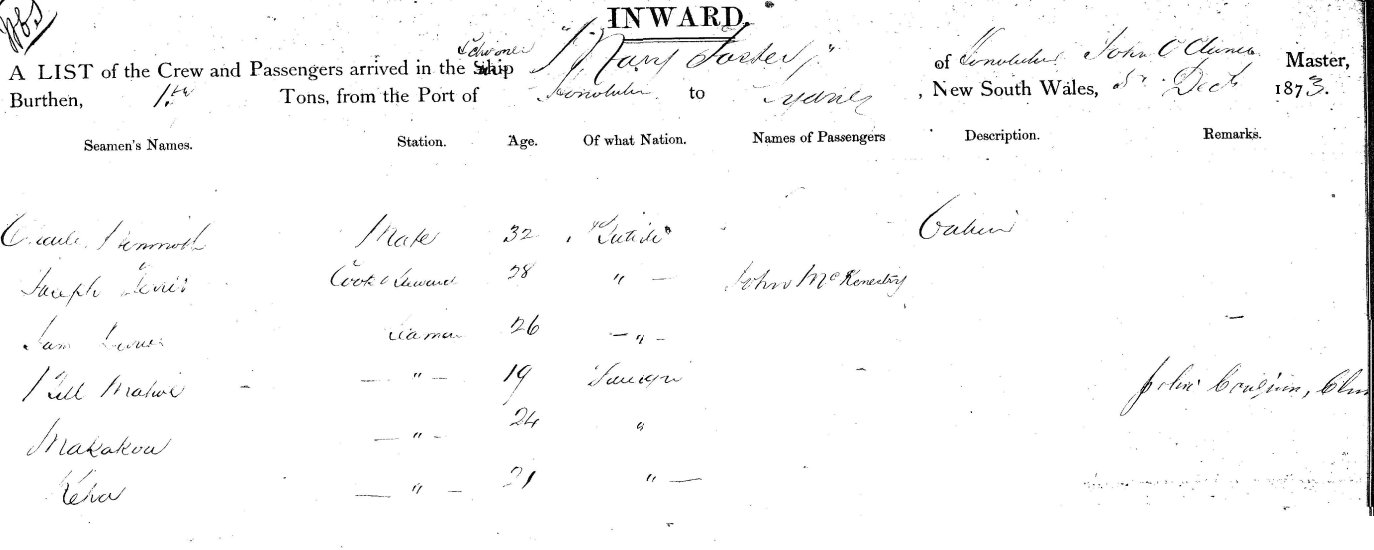 INWARD.
A LIST of the Crew and Passengers arrived in the Ship Schooner "Mary Foster" of Honolulu John C Master,
Burthen, Tons, from the Port of Honolulu to Sydney, New South Wales, Dect 1873.
Seamen's Names. Station. Age. Of what Nation. Names of Passengers Description. Remarks.
Mate 32 British Cabin
Joseph Cook & Steward 28 " — John McKenestry
Sam Seaman 26 — " —
Bill Mahoe — " — 19 Foreign John
Makakoa — " — 24 "
Keha — " — 21 " —